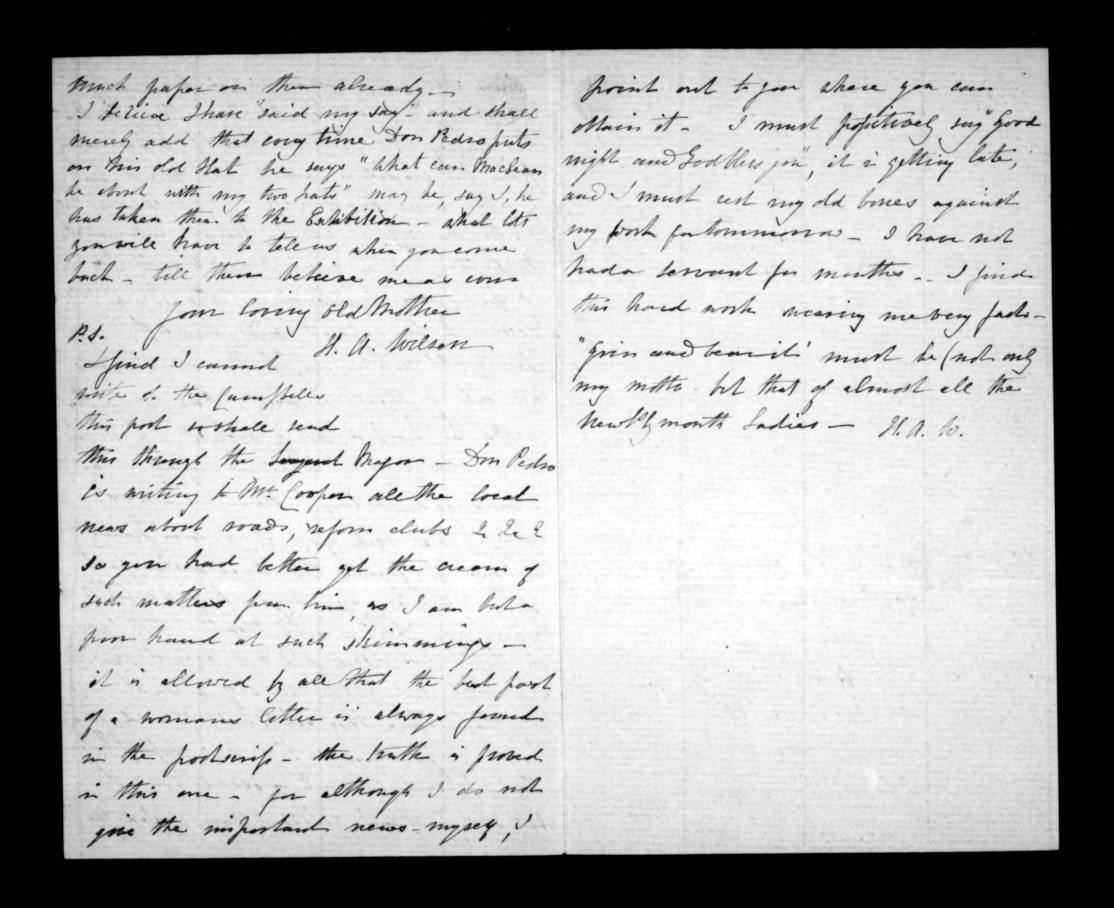 much paper on them already. -
I believe I have "said my say" and shall
merely add that every time Don Pedro puts
on his old Hat he says "what can MacLean
be about with my two hats" may be, say I, he
has taken them to the Exhibition - what lots
you will have to tell us when you come
back - till then believe me as ever
Your loving old Mother
H. A. Wilson
P.S.
I find I cannot
write to the Campbells
this post so shall send
this through the Sergeant Major - Don Pedro
is writing to Mr Cooper all the local
news about roads, reform clubs & & &
so you had better get the cream of
such matters from him, as I am but a
poor hand at such skimmings -
it is allowed by all that the best part
of a womans letter is always found
in the postscrip - the truth is proved
in this one - for although I do not
give the important news - myself, I
point out to you where you can
obtain it - I must positively say "Good
night and God bless you", it is getting late,
and I must rest my old bones against
my work for tommorrow - I have not
had a servant for months - I find
this hard work wearing me very fast -
"grin and bear it" must be (not only
my motto but that of almost all the
New Plymouth Ladies - H. A. W.